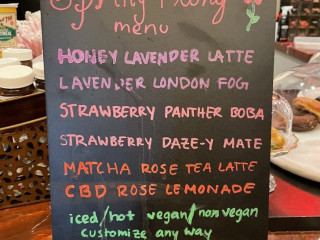 Spring Fling
menu
HONEY LAVENDER LATTE
LAVENDER LONDON FOG
STRAWBERRY PANTHER BOBA
STRAWBERRY DAZE-Y MATE
MATCHA ROSE TEA LATTE
CBD ROSE LEMONADE
iced/hot vegan/nonvegan
customize any way